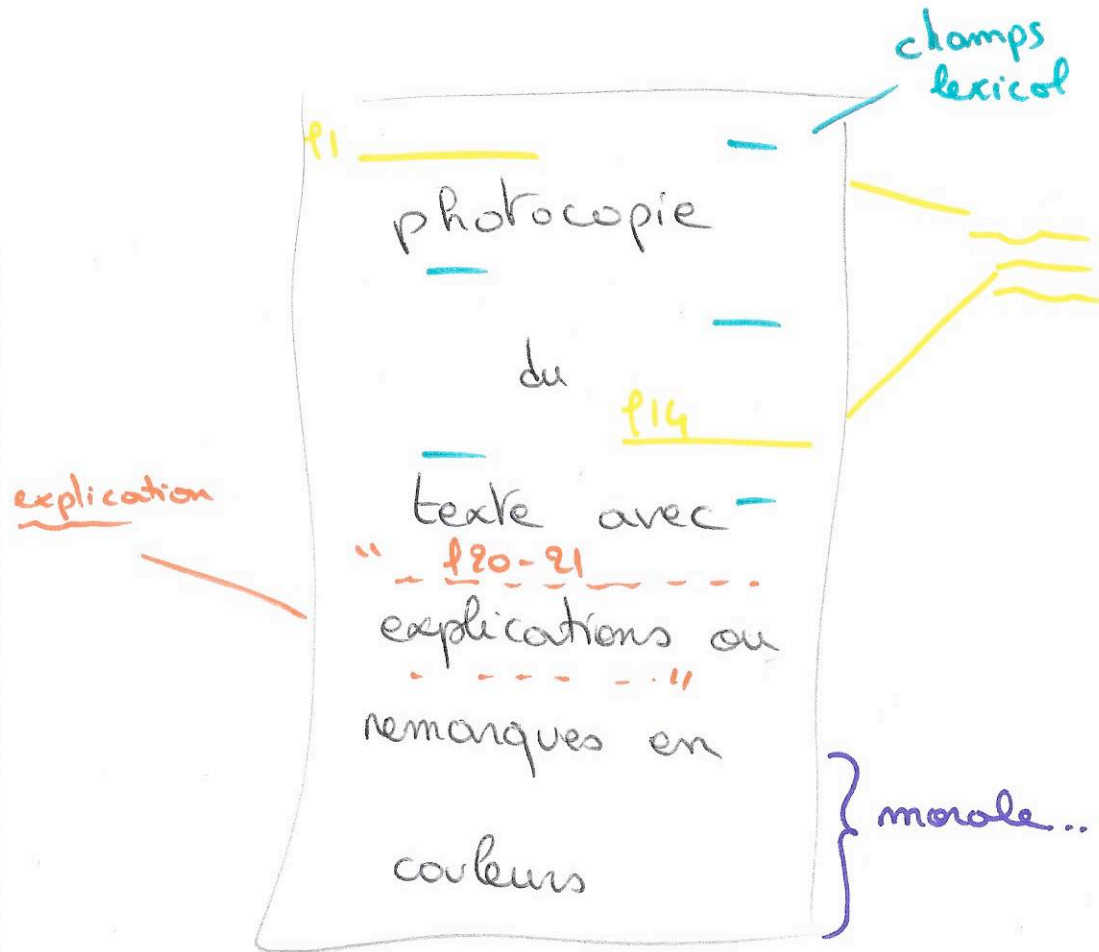 champs
lexical
l1
photocopie
du
l14
texte avec
explication
" l20-21
explications ou
"
remarques en
morale...
couleurs